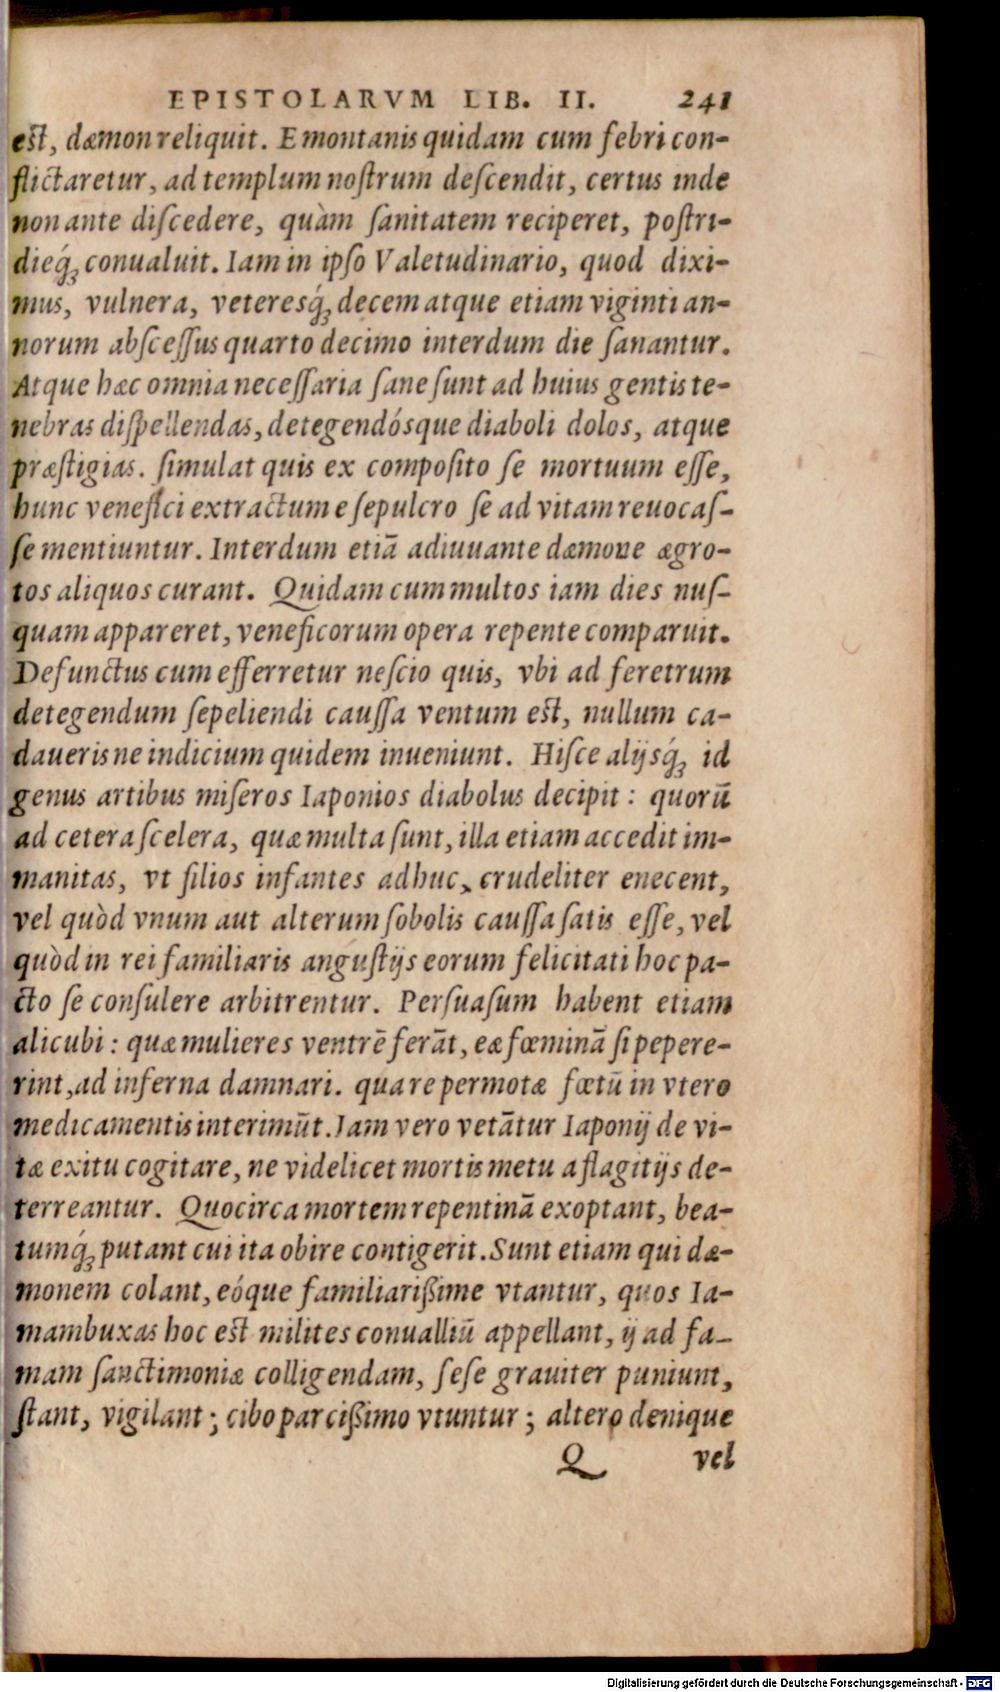 EPISTOLARVM LIB. II. 241
est, dæmon reliquit. E montanis quidam cum febri con-
flictaretur, ad templum noſtrum deſcendit, certus inde
non ante diſcedere, quàm ſanitatem reciperet, poſtri-
dieq́ꝫ conualuit. Iam in ipſo Valetudinario, quod dixi-
mus, vulnera, veteresq́ꝫ decem atque etiam viginti an-
norum abſceſſus quarto decimo interdum die ſanantur.
Atque hæc omnia neceſſaria ſane ſunt ad huius gentis te-
nebras diſpellendas, detegendósque diaboli dolos, atque
præſtigias. ſimulat quis ex compoſito ſe mortuum eſſe,
hunc venefici extractum e ſepulcro ſe ad vitam reuocaſ-
ſe mentiuntur. Interdum etiā adiuuante dæmone ægro-
tos aliquos curant. Quidam cum multos iam dies nuſ-
quam appareret, veneficorum opera repente comparuit.
Defunctus cum efferretur neſcio quis, vbi ad feretrum
detegendum ſepeliendi cauſſa ventum eſt, nullum ca-
daueris ne indicium quidem inueniunt. Hiſce alijsq́ꝫ id
genus artibus miſeros Iaponios diabolus decipit: quorū
ad cetera ſcelera, quæ multa ſunt, illa etiam accedit im-
manitas, vt filios infantes adhuc, crudeliter enecent,
vel quòd vnum aut alterum ſobolis cauſſa ſatis eſſe, vel
quòd in rei familiaris anguſtijs eorum felicitati hoc pa-
cto ſe conſulere arbitrentur. Perſuaſum habent etiam
alicubi: quæ mulieres ventrē ferāt, eæ fœminā ſi pepere-
rint, ad inferna damnari. quare permotæ fœtū in vtero
medicamentis interimūt. Iam vero vetātur Iaponij de vi-
tæ exitu cogitare, ne videlicet mortis metu a flagitijs de-
terreantur. Quocirca mortem repentinā exoptant, bea-
tumq́ꝫ putant cui ita obire contigerit. Sunt etiam qui dæ-
monem colant, eóque familiarißime vtantur, quos Ia-
mambuxas hoc eſt milites conualliū appellant, ij ad fa-
mam ſanctimoniæ colligendam, ſeſe grauiter puniunt,
ſtant, vigilant; cibo parcißimo vtuntur; altero denique
Q vel
Digitalisierung gefördert durch die Deutsche Forschungsgemeinschaft - DFG